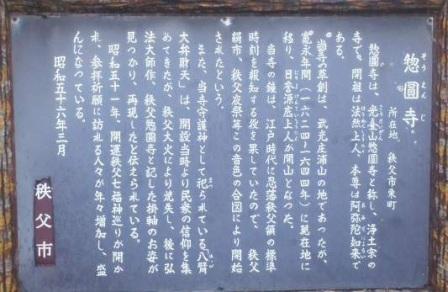 惣圓寺
そう えん じ
所在地 秩父市東町
惣圓寺は、光基山惣圓寺と称し、浄土宗の
寺で、開祖は法然上人、本尊は阿弥陀如来で
ある。
当寺の草創は、武光庄浦山の地であったが、
寛永年間(一六二四~一六四四年)に現在地に
移り、日誉源底上人が開山となった。
当寺の鐘は、江戸時代に忍藩秩父領の標準
時刻を報知する役を果していたので、秩父
絹市、秩父屋祭等この音色の合図により開始
されたという。
また、当寺守護神として祀られている「八臂
大弁財天」は、開設当時より民衆の信仰を集
めてきたが、秩父大火により焼失し、後に弘
法大師作、秩父惣圓寺と記した掛軸のお姿が
見つかり、再現したと伝えられている。
昭和五十一年、開運秩父七福神巡りが開か
れ、参拝祈願に訪れる人々が年々増加し、盛
んになっている。
昭和五十六年三月
秩父市